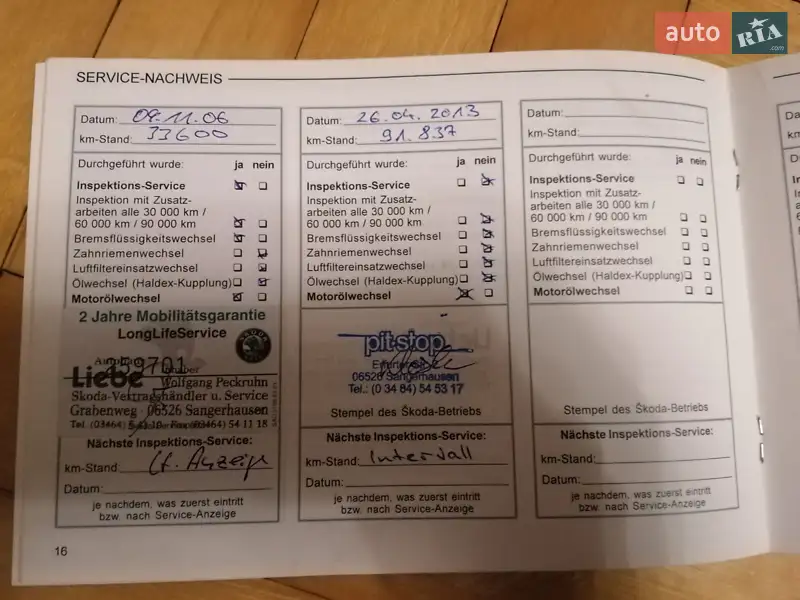 auto RIA.com
SERVICE-NACHWEIS
Datum: 09.11.06
km-Stand: 33600
Durchgeführt wurde: ja nein
Inspektions-Service
Inspektion mit Zusatz-
arbeiten alle 30 000 km /
60 000 km / 90 000 km
Bremsflüssigkeitswechsel
Zahnriemenwechsel
Luftfiltereinsatzwechsel
Ölwechsel (Haldex-Kupplung)
Motorölwechsel
2 Jahre Mobilitätsgarantie
LongLifeService
259701
Autohaus Inhaber
Liebe Wolfgang Peckruhn
Skoda-Vertragshändler u. Service
Grabenweg · 06526 Sangerhausen
Tel. (03464) 54 11 18
Nächste Inspektions-Service:
km-Stand: lt. Anzeige
Datum:
je nachdem, was zuerst eintritt
bzw. nach Service-Anzeige
Datum: 26.04.2013
km-Stand: 91.837
Durchgeführt wurde: ja nein
Inspektions-Service
Inspektion mit Zusatz-
arbeiten alle 30 000 km /
60 000 km / 90 000 km
Bremsflüssigkeitswechsel
Zahnriemenwechsel
Luftfiltereinsatzwechsel
Ölwechsel (Haldex-Kupplung)
Motorölwechsel
pit-stop
06526 Sangerhausen
Tel.: (0 34 64) 54 53 17
Stempel des Škoda-Betriebs
Nächste Inspektions-Service:
km-Stand: Intervall
Datum:
je nachdem, was zuerst eintritt
bzw. nach Service-Anzeige
Datum:
km-Stand:
Durchgeführt wurde: ja nein
Inspektions-Service
Inspektion mit Zusatz-
arbeiten alle 30 000 km /
60 000 km / 90 000 km
Bremsflüssigkeitswechsel
Zahnriemenwechsel
Luftfiltereinsatzwechsel
Ölwechsel (Haldex-Kupplung)
Motorölwechsel
Stempel des Škoda-Betriebs
Nächste Inspektions-Service:
km-Stand:
Datum:
je nachdem, was zuerst eintritt
bzw. nach Service-Anzeige
16